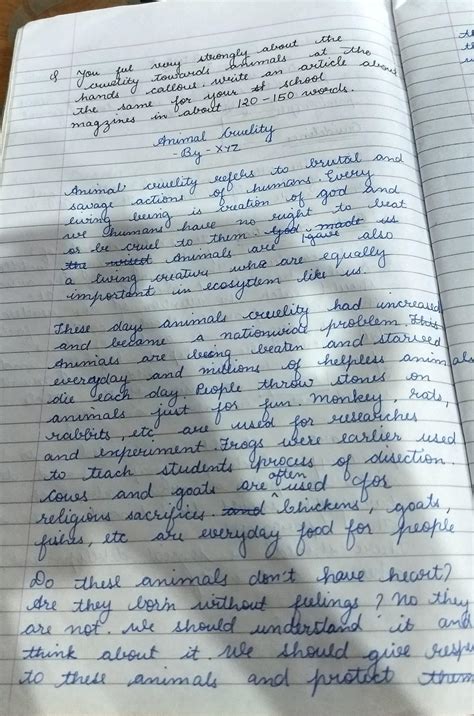 Q You feel very strongly about the
cruelity towards animals at the
hands callout. write an article about
the same for your school
magzines in about 120-150 words.
Animal Cruelity
- By - XYZ
Animal cruelity refers to brutal and
savage actions of humans. Every
living being is creation of god and
we humans have no right to beat
or be cruel to them. God made us
the wisest Animals are also
a living creature who are equally
important in ecosystem like us.
These days animals cruelity had increased
and became a nationwide problem. This
Animals are being beaten and starved
everyday and millions of helpless animals
die each day. People throw stones on
animals just for fun. Monkey, rats,
rabbits, etc are used for researches
and experiment. Frogs were earlier used
to teach students process of disection.
Cows and goats are often used for
religious sacrifices and Chickens, goats,
fishes, etc are everyday food for people
Do these animals don't have heart?
Are they born without feelings? No they
are not. We should understand it and
think about it. We should give respe
to these animals and protect them